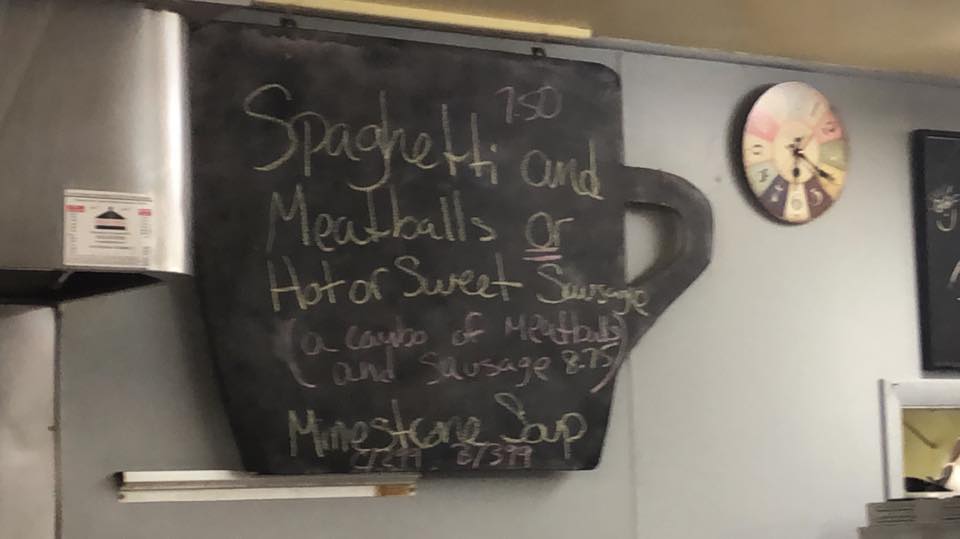 7.50
Spaghetti and
Meatballs or
Hot or Sweet Sausage
(a combo of Meatballs
and Sausage 8.75)
Minestrone Soup
B/3.99